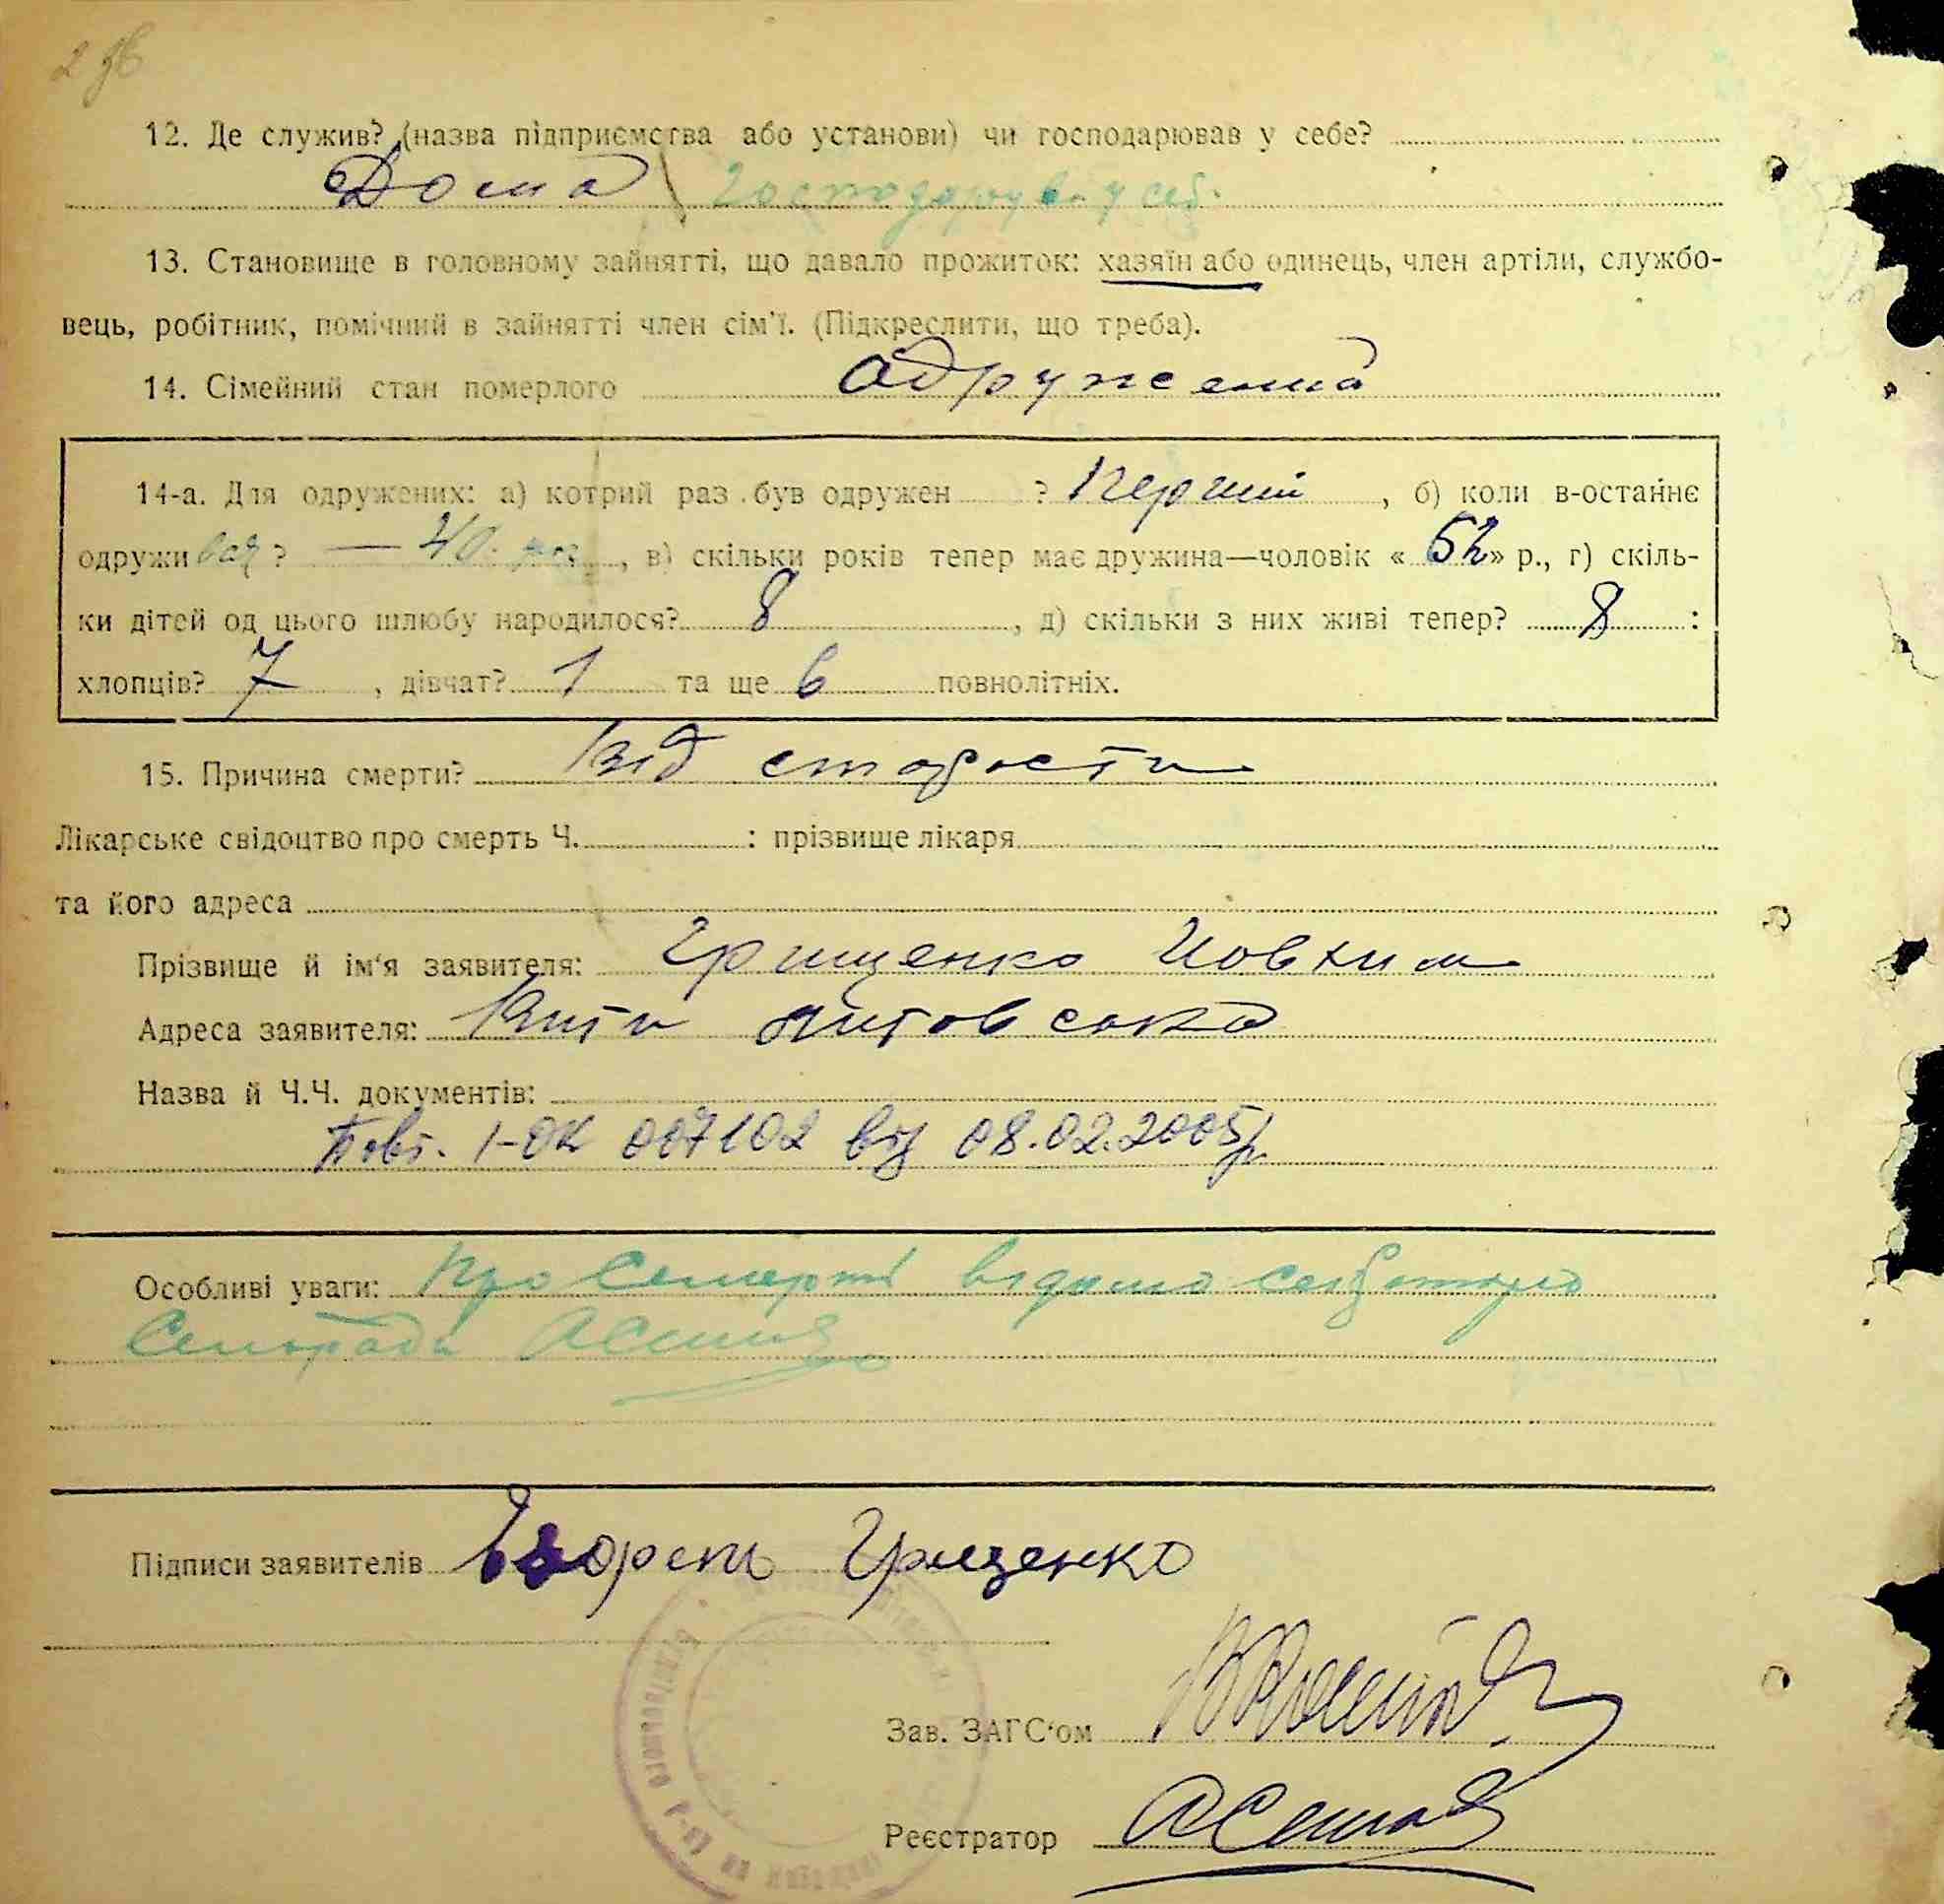 2 зв
12. Де служив? (назва підприємства або установи) чи господарював у себе?
Дома господарював у себ.
13. Становище в головному зайнятті, що давало прожиток: хазяїн або одинець, член артіли, службо-
вець, робітник, помічний в зайнятті член сім'ї. (Підкреслити, що треба).
14. Сімейний стан померлого одружений
14-а. Для одружених: а) котрий раз був одружен ? Перший , б) коли в-останнє
одружи вся? — 40 , в) скільки років тепер має дружина—чоловік «62» р., г) скіль-
ки дітей од цього шлюбу народилося? 8 , д) скільки з них живі тепер? 8 :
хлопців? 7 , дівчат? 1 та ще 6 повнолітніх.
15. Причина смерти? Від старости
Лікарське свідоцтво про смерть Ч. : прізвище лікаря
та його адреса
Прізвище й ім'я заявителя: Грищенко Йовхим
Адреса заявителя: Вита Литовська
Назва й Ч.Ч. документів:
Повт. І-ОК 007102 від 08.02.2005р
Особливі уваги: Про Смерть видано
Сельради
Підписи заявителів Грищенко
Зав. ЗАГС'ом
Реєстратор